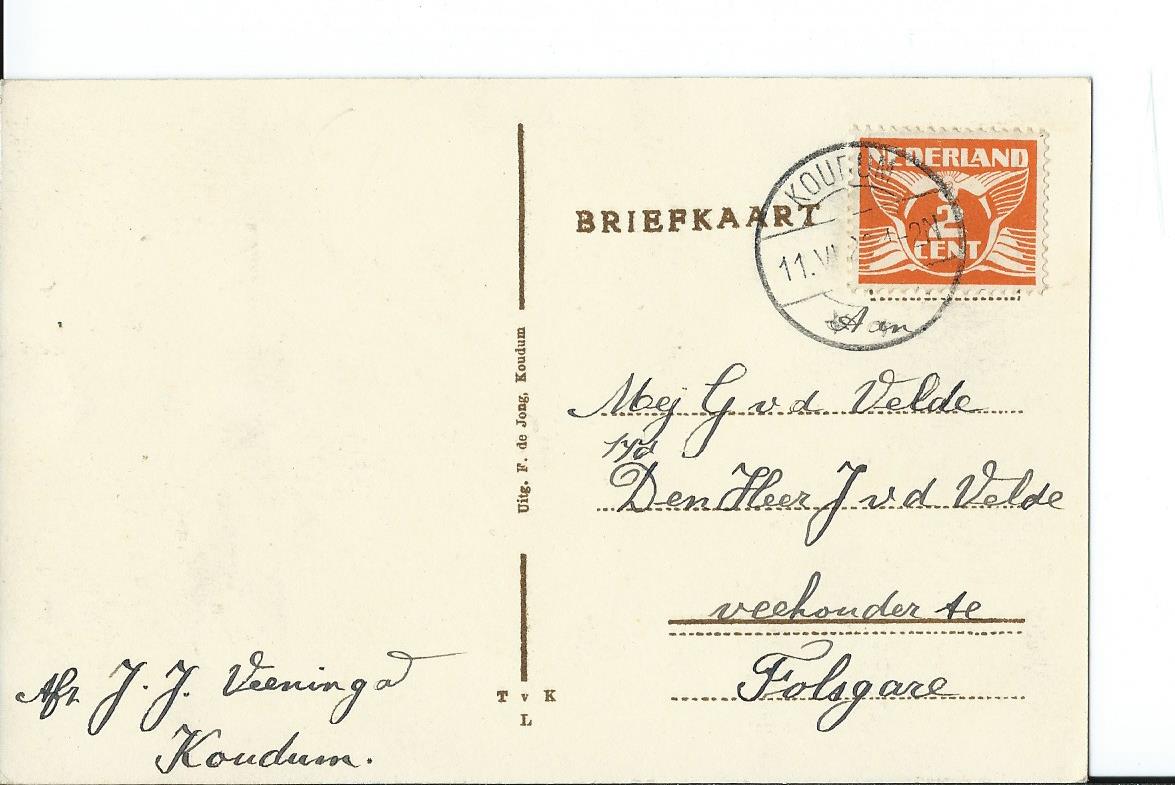 BRIEFKAART
NEDERLAND
2
CENT
KOUDUM
11.VI
1-2N
Aan
Mej G v d Velde
Den Heer J v d Velde
veehouder te
Folsgare
Uitg. F. de Jong, Koudum
T v K
L
Afz. J. J. Veeninga
Koudum.